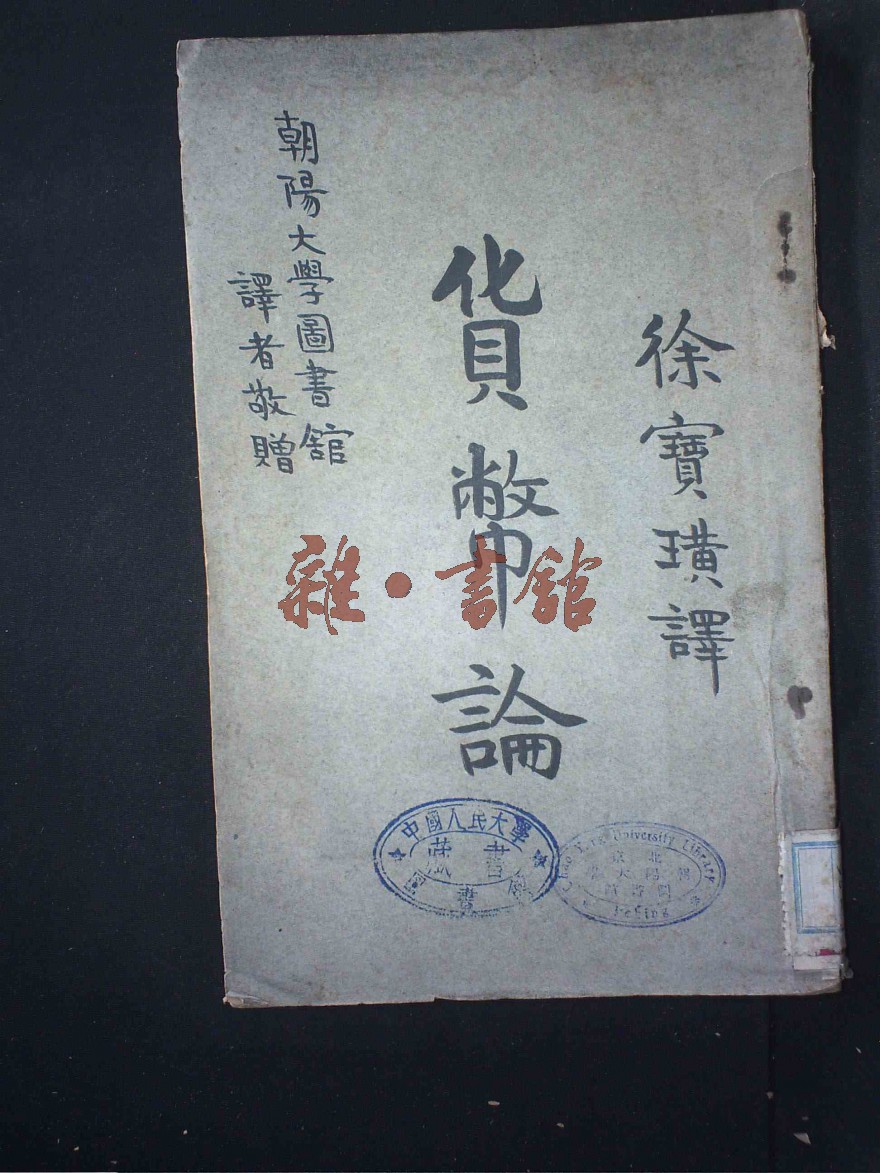 徐寶璜譯
貨幣論
朝陽大學圖書舘
譯者敬贈
雜·書舘
中國人民大學
藏書
圖書館
Chao Yang University Library
北京
朝陽大學
圖書館
Peking